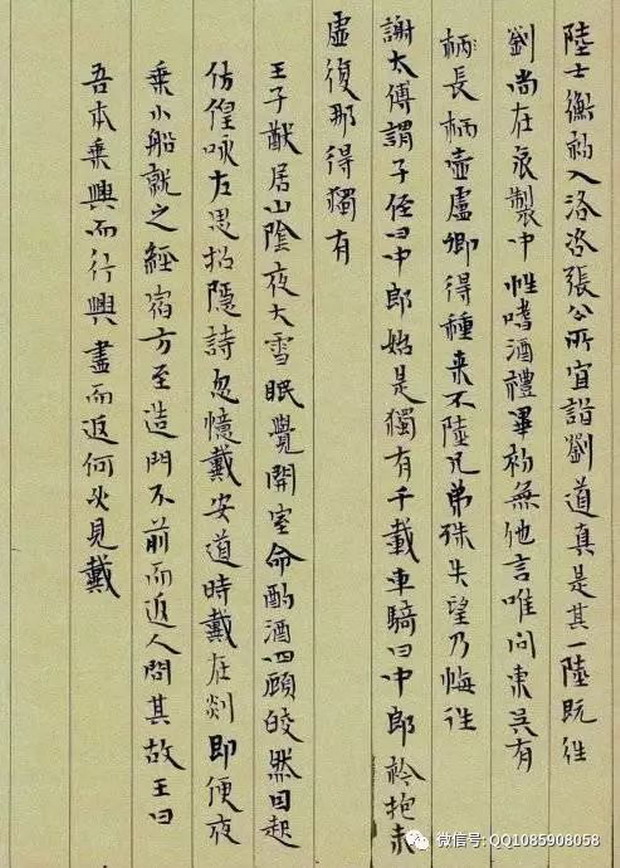 陸士衡初入洛咨張公所宜詣劉道真是其一陸既往
劉尚在哀製中性嗜酒禮畢初無他言唯問東吳有
柄長柄壺盧卿得種来不陸兄弟殊失望乃悔往
謝太傅謂子侄曰中郎始是獨有千載車騎曰中郎衿抱未
虛復那得獨有
王子猷居山陰夜大雪眠覺開室命酌酒四顧皎然因起
仿偟咏左思招隱詩忽憶戴安道時戴在剡即便夜
乗小船就之經宿方至造門不前而返人問其故王曰
吾本乗興而行興盡而返何必見戴
微信号: QQ1085908058